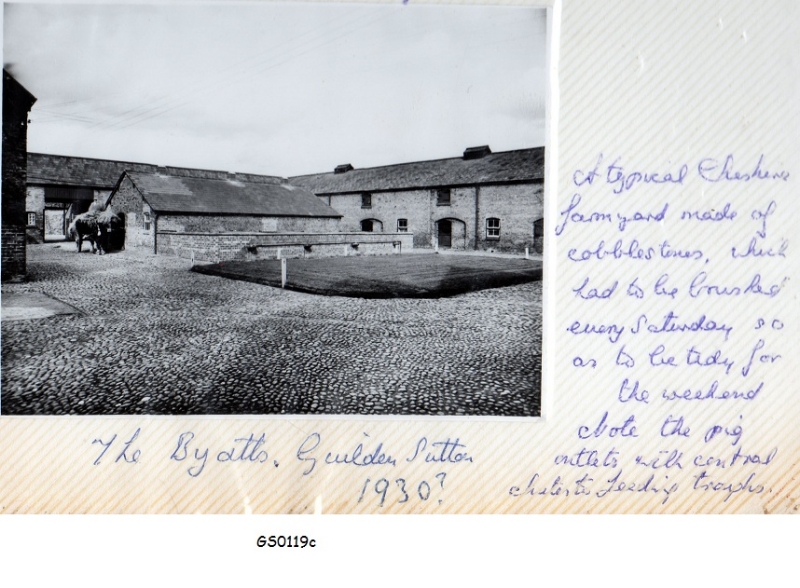 A typical Cheshire
farmyard made of
cobblestones, which
had to be brushed
every Saturday so
as to be tidy for
the weekend
Note the pig
outlets with central
feeding troughs.
The Byatts, Guilden Sutton
1930?
GS0119c